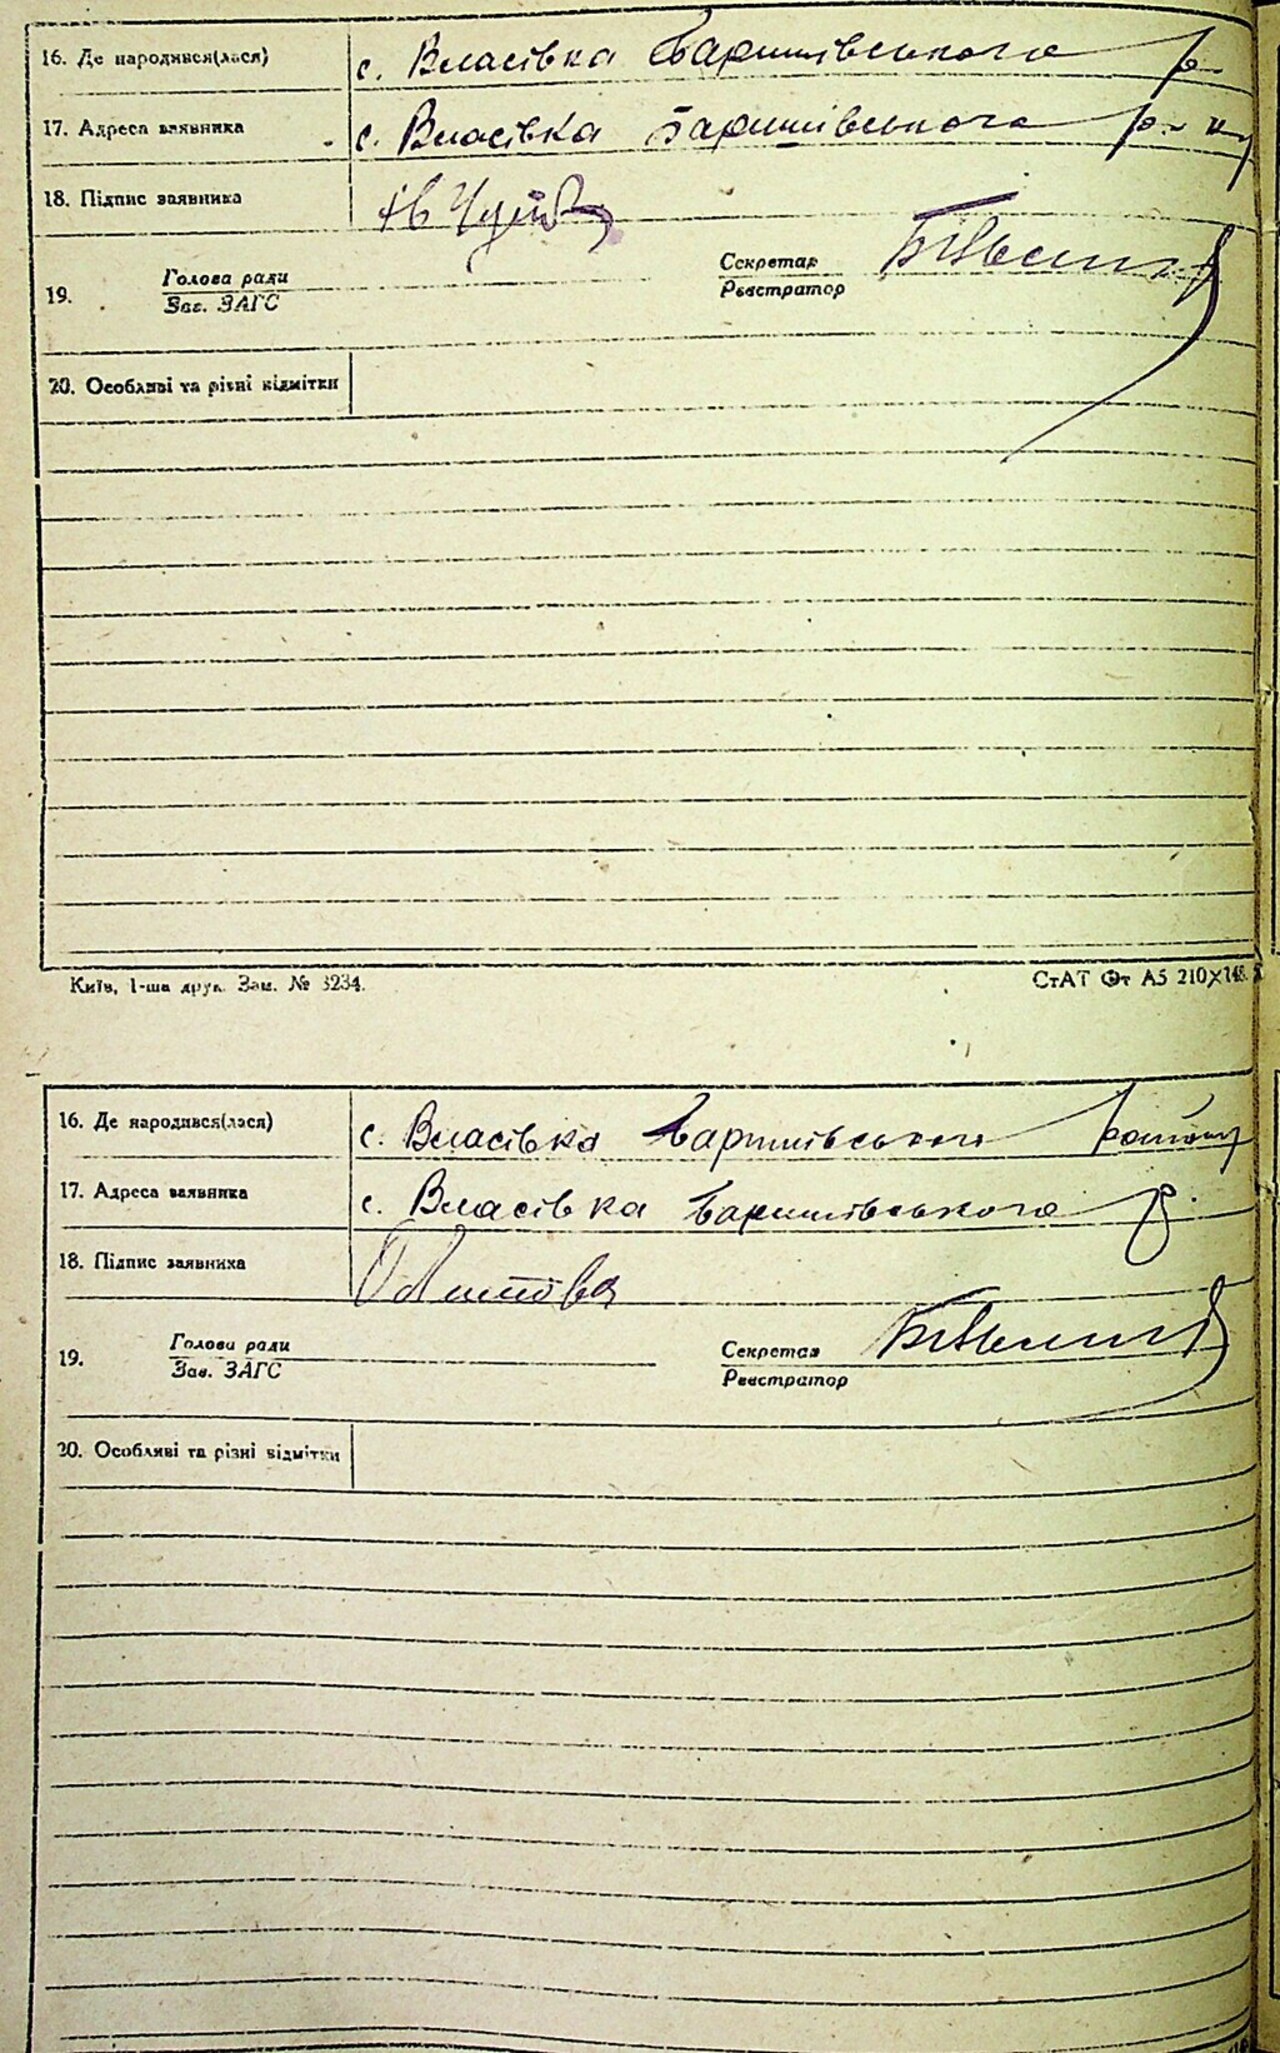 16. Де народився(лася) с. Власівка Баришівського р.
17. Адреса заявника с. Власівка Баришівського р-ну
18. Підпис заявника
Голова ради Секретар
19.
Зав. ЗАГС Реєстратор
20. Особливі та різні відмітки
Київ, 1-ша друк. Зам. № 3234. СтАТ Фт А5 210×148
16. Де народився(лася) с. Власівка Баришівського району
17. Адреса заявника с. Власівка Баришівського р.
18. Підпис заявника
Голова ради Секретар
19.
Зав. ЗАГС Реєстратор
20. Особливі та різні відмітки